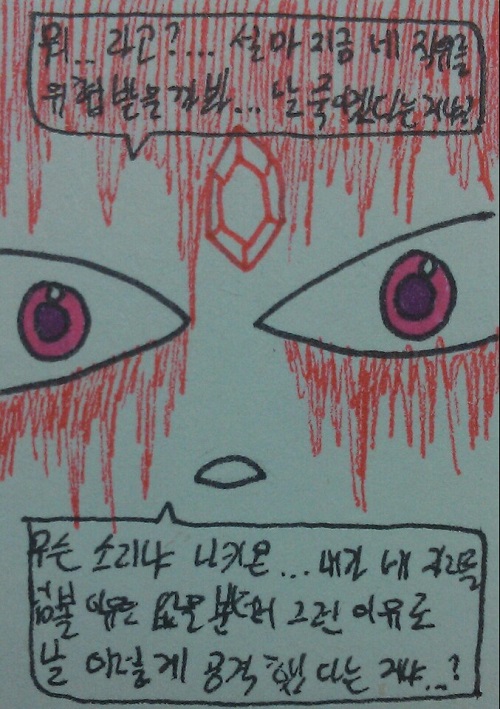 뭐.. 라고?... 설마 지금 네 직위를
위협 받을까봐... 날 죽이겠다는 거냐?
무슨 소리냐 니키몬... 내가 네 자리를
넘볼 이유는 없을 뿐더러 그런 이유로
날 이렇게 공격했다는 거냐...?